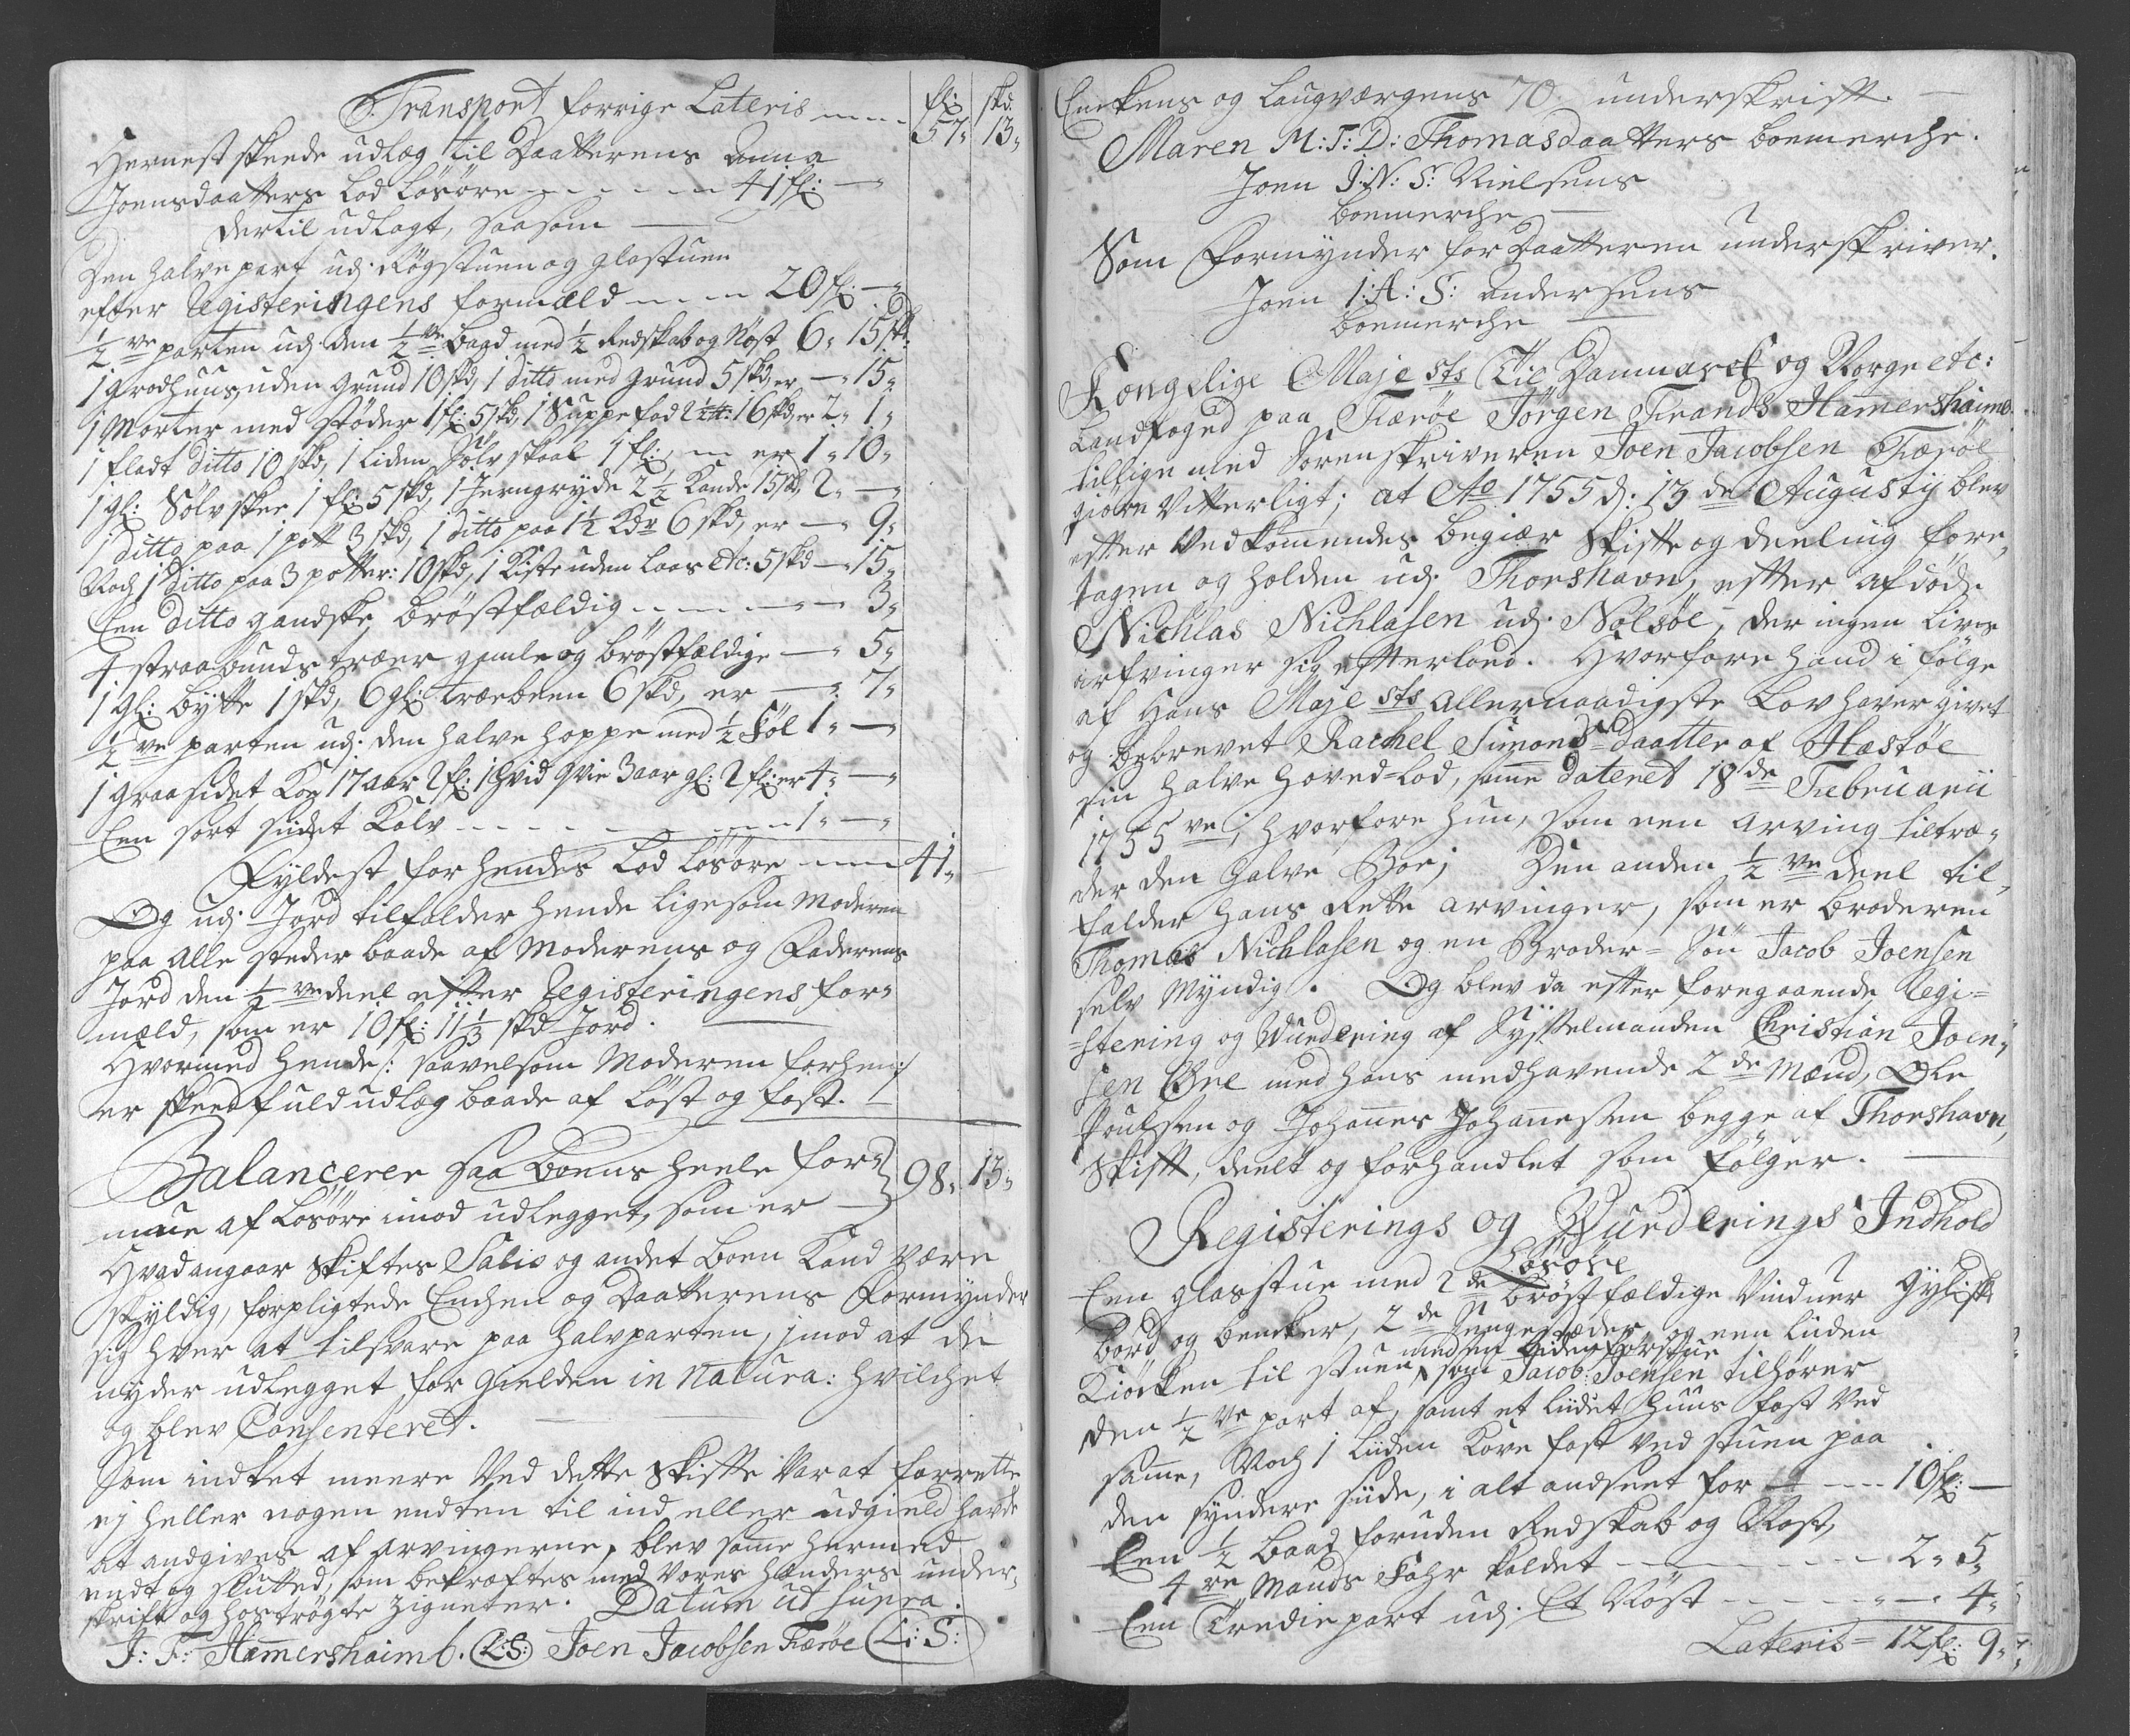 Transport forrige Lateris fl: skd.
57" 13"
Hernest skeede udlæg til Daatterens Anna
Joensdaatters Lod Løsøre 41 fl: —"
dertil udlagt, saasom
Den halve part udj Røgstuen og glastuen
efter Registeringens formæld 20 fl: —"
½ve parten udj den ½ve Baad med ½ Redskab og Nøst 6" 15 sk:
1 Grodhuus, uden grund 10 skd, 1 ditto med Grund 5 skd, er —" 15"
1 Morter med støder 1 fl: 5 skd, 1 Suppe fad 16 skd er 2" 1"
1 fladt ditto 10 skd, 1 liden Sølv skaal 1 fl: er 1" 10"
1 gl: Sølv skee 1 fl: 5 skd, 1 Jerngryde 2½ Kande 15 skd, 2" —"
1 ditto paa 1 pott 3 skd, 1 ditto paa 1½ Kdr 6 skd, er —" 9"
Noch 1 ditto paa 3 potter: 10 skd, 1 Kiste uden laas etc: 5 skd —" 15"
Een ditto gandske brøstfældig —" 3"
4 straa bunds træer gamle og brøstfældige —" 5"
1 gl: bytte 1 skd, 6 gl: træbeen 6 skd, er —" 7"
½ve parten udj. den halve hoppe med ½ Føl 1" —"
1 graasidet Koe 17 aar 2 fl: 1 hvid Qvie 3 aar gl: 2 fl: er 4" —"
Een sort sidet Kalv 1" —"
Fyldest for hendes Lod Løsøre 41"
Og udj Jord tilfalder hende ligesom Moderen
paa alle steder baade af Moderens og Faderens
Jord den ½ve deel efter Registeringens for-
mæld, som er 10 fl: 11⅓ skd Jord.
Hvormed hende /: saavelsom Moderen forhen :/
er skeed fuld udlæg baade af løst og fast.
Balancerer saa Boens heele for-
mue af Løsøre imod udlegget, som er 98" 13"
Hvad angaar Skiftes Salio og andet Boen Kand være
skyldig, forpligtede Enchen og Daatterens Formynder
sig hver at tilsvare paa halvparten, imod at de
nyder udlegget for gielden in Natura: hvilchet
og blev Consenteret.
Som indtet meere Ved dette Skifte Var at forrette
ej heller nogen endten til ind eller udgield havde
at andgives af arvingerne, blev samme hermed
endt og sluttet, som bekræftes med Vores hænders under-
skrift og hostrøgte Zigneter. Datum ut supra.
J: F: Hamershaimb. (L:S:) Joen Jacobsen Færøe (L:S:)
Enckens og Laugværgens 70. underskrift.
Maren M: T: D: Thomasdaatters boemerche.
Joen J: N: S: Nielsens
boemerche
Som Formynder for Daatteren underskriver.
Joen J: A: S: Andersens
boemerche
Kongelige Majests til Danmarck og Norge etc:
Landfoged paa Færøe Jørgen Frands Hamershaimb.
tillige med Sorenskriveren Joen Jacobsen Færøe
giøre Vitterligt; at Ao 1755 d: 13de Augustij blev
efter Vedkommendes begiær Skifte og deeling fore-
tagen og holden udj Thorshavn, efter afdøde
Nichlas Nichlasen udj. Nolsøe, der ingen livs
arfvinger sig efterloed. Hvorfore hand i følge
af Hans Majests Allernaadigste Lov haver givet
og bebrevet Rachel Simonsdaatter af Hæstøe
sin halve Hoved-Lod, samme dateret 18de Februarii
1755ve; hvorfore hun, som een Arving tiltræ-
der den halve Boe; Den anden ½ve deel til-
falder hans Rette arvinger, som er broderen
Thomas Nichlasen og en Broder-Søn Jacob Joensen
selv Myndig. Og blev da efter foregaaende Regi-
stering og Wurdering af Sysselmanden Christian Joen-
sen med hans medhavende 2de Mænd, Ole
Poulsen og Johannes Johannesen begge af Thorshavn,
Skift, deelt og forhandlet som følger.
Registerings og Wurderings Indhold
Løsøre
Een glasstue med 2de brøstfældige Vinduer
bord og bencker, 2de Sengestæder og een liden
med en liden forstue
Kiøcken til stuen, som Jacob Joensen tilhører
den ½ve part af, samt et lidet huus fast Ved
samme, Noch 1 liden Kove fast ved stuen paa
den syndere siide, i alt andseet for 10 fl: —
Een ½ baad foruden Redskab og Nøst,
4re Mands Fahr kaldet 2" 5"
Een Tredie part udj. Et Nøst —" 4"
Lateris 12 fl: 9"